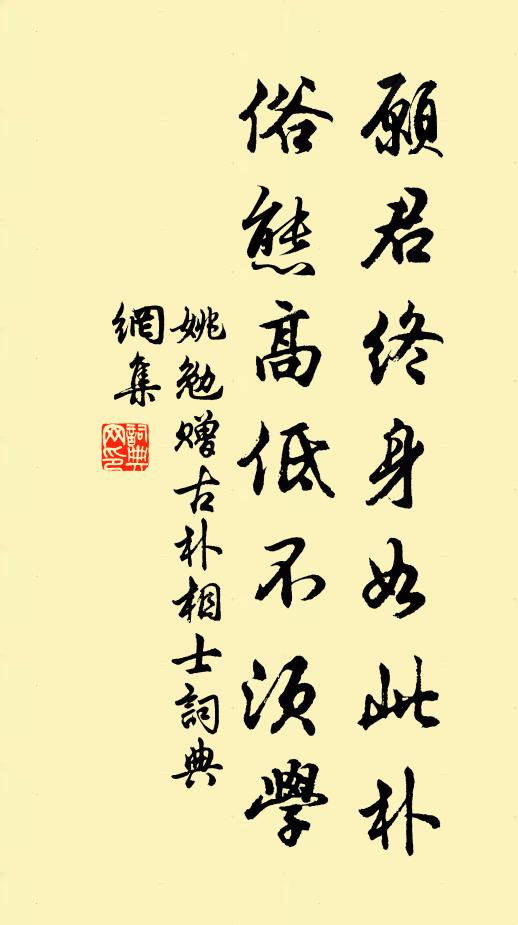 願君終身如此朴
俗態高低不須學
姚勉贈古朴相士詞典
網集
詞典
网印